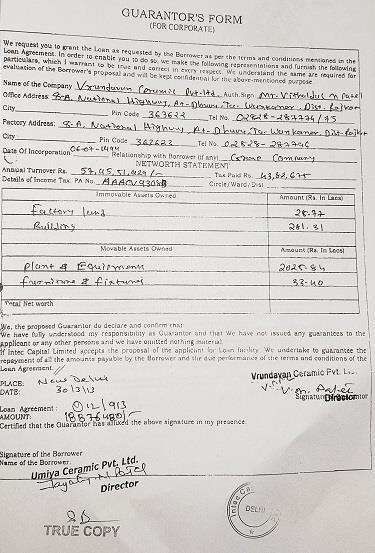 GUARANTOR'S FORM
(FOR CORPORATE)
We request you to grant the Loan as requested by the Borrower as per the terms and conditions mentioned in the
Loan Agreement. In order to enable you to do so, we make the following representations and furnish the following
particulars, which I warrant to be true and correct in every respect. We understand the same are required for
evaluation of the Borrower's proposal and will be kept confidential for the above-mentioned purpose.
Name of the Company Vrundavan Ceramic Pvt. Ltd. Auth. Sign. Mr. Vithaldas M Patel
Office Address: 8-A, National Highway, At-Dhuva, Ta-Wankaner, Dist. Rajkot
City Pin Code 363622 Tel No. 02828-287774/75
Factory Address: 8-A, National Highway At-Dhuva, Ta-Wankaner, Dist-Rajkot
City Pin Code 363622 Tel No. 02828-287746
Date Of Incorporation 06-07-1994 Relationship with Borrower (if any) Group Company
NETWORTH STATEMENT
Annual Turnover Rs. 57,45,51,029/- Tax Paid Rs. 43,82,675
Details of Income Tax: PA No. Circle/Ward/Dist
Immovable Assets Owned Amount (Rs. In Lacs)
Factory Land 28.77
Building 281.31
Movable Assets Owned Amount (Rs. In Lacs)
Plant & Equipments 2025.84
furniture & fixtures 33.40
Total Net worth
We, the proposed Guarantor do declare and confirm that:
We have fully understood my responsibility as Guarantor and that We have not issued any guarantees to the
applicant or any other persons and we have omitted nothing material.
If Intec Capital Limited accepts the proposal of the applicant for Loan facility. We undertake to guarantee the
repayment of all the amounts payable by the Borrower and the due performance of the terms and conditions of the
Loan Agreement.
PLACE: New Delhi
DATE: 30/3/13
Vrundavan Ceramic Pvt. L
Signature Guarantor
Director
Loan Agreement :
AMOUNT: 18876480/-
Certified that the Guarantor has affixed the above signature in my presence.
Signature of the Borrower
Name of the Borrower
Umiya Ceramic Pvt. Ltd.
Director
TRUE COPY
Intec Ca
DELHI